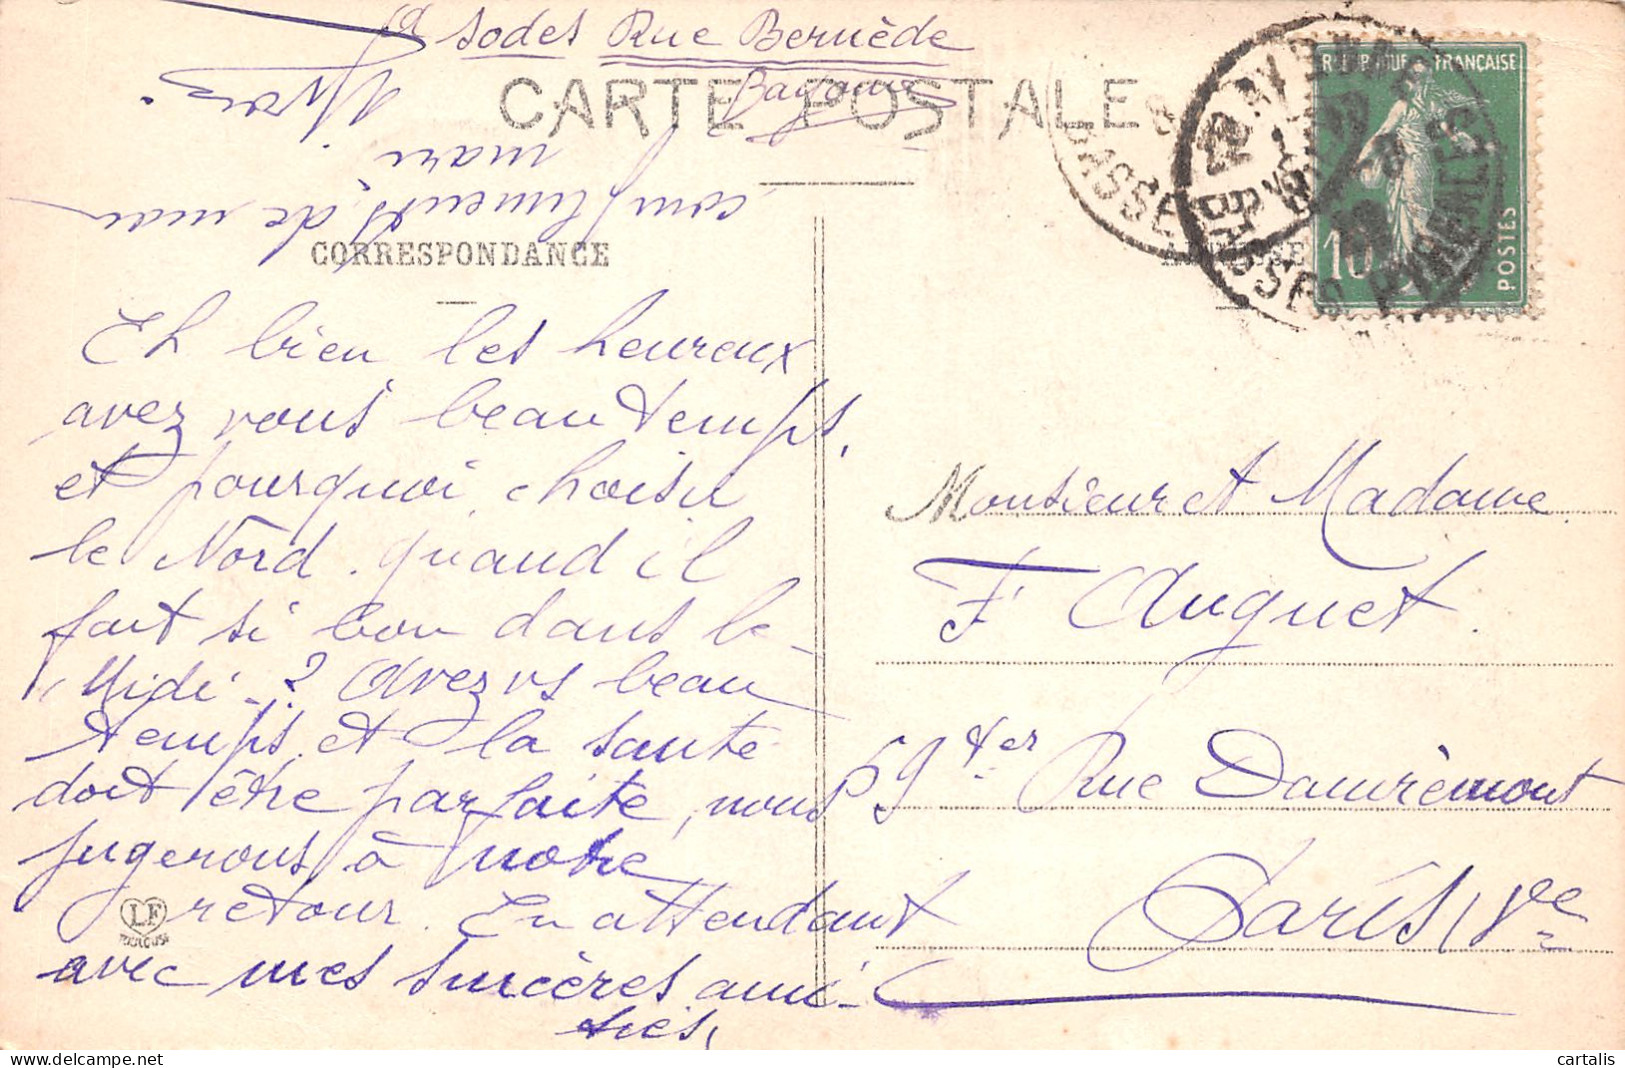 sodes Rue Bernède
Bayonne
CARTE POSTALE
CORRESPONDANCE
Eh bien les heureux
avez vous beau temps,
et pourquoi choisir
le Nord quand il
fait si bon dans le
Midi - ? Avez vs beau
temps et la santé
doit être parfaite, nous
jugerons à notre
retour. En attendant
avec mes sincères ami-
tiés,
compliments de mon
mari
LF
TOULOUSE
BASSES
BAYONNE
BASSES PYRENEES
FRANÇAISE
10
POSTES
Monsieur et Madame
F Auguet.
59 ter Rue Damrémont
Paris,
cartalis